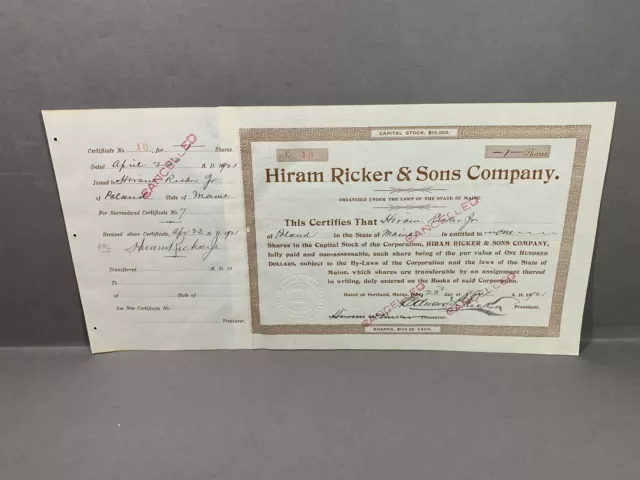 Certificate No. 10 for 1 Shares.
Dated April 23 A. D. 1921
Issued to Hiram Ricker Jr
of Poland State of Maine
For Surrendered Certificate No. 7
Received above Certificate, Apr 23 A. D. 1921
Hiram Ricker Jr
Transferred A. D. 19
To
of State of
See New Certificate No.
Treasurer.
CANCELLED
CAPITAL STOCK, $10,000.
No. 10
-1- Shares
Hiram Ricker & Sons Company.
ORGANIZED UNDER THE LAWS OF THE STATE OF MAINE.
This Certifies That Hiram Ricker Jr
of Poland in the State of Maine is entitled to one
Shares in the Capital Stock of the Corporation, HIRAM RICKER & SONS COMPANY,
fully paid and non-assessable, each share being of the par value of ONE HUNDRED
DOLLARS, subject to the By-Laws of the Corporation and the laws of the State of
Maine, which shares are transferable by an assignment thereof
in writing, duly entered on the Books of said Corporation.
Dated at Portland, Maine, this 23d day of A. D. 1921
Treasurer.
President.
CANCELLED
CANCELLED
CANCELLED
SHARES, $100.00 EACH.